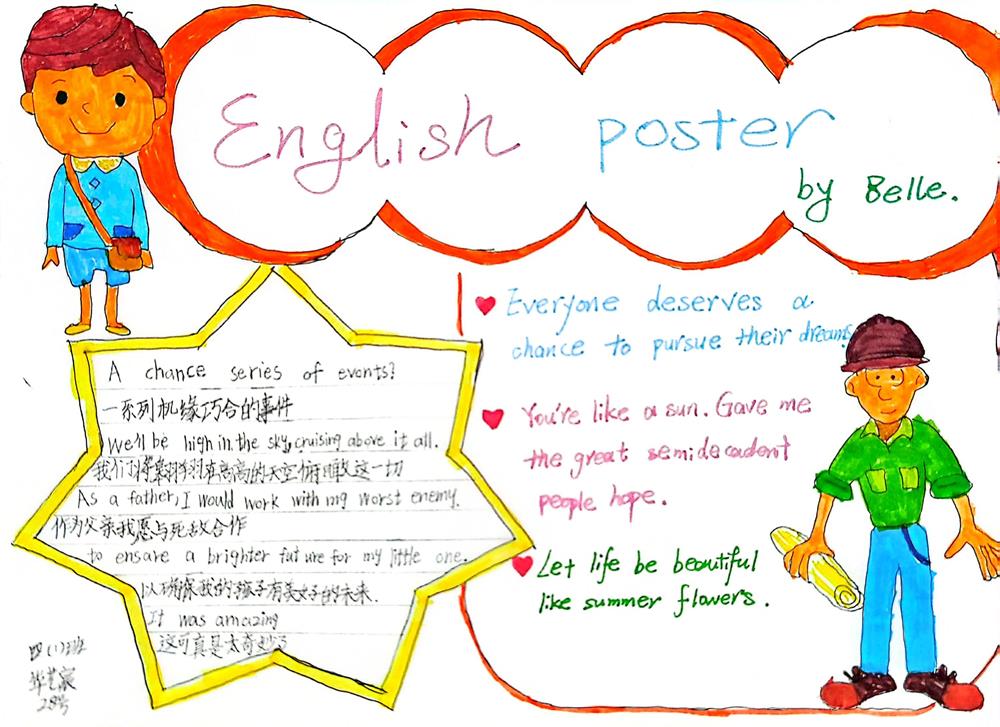 English poster
by Belle.
A chance series of events?
一系列机缘巧合的事件
We'll be high in the sky, cruising above it all.
我们将翱翔在高高的天空俯瞰这一切
As a father, I would work with my worst enemy.
作为父亲我愿与死敌合作
to ensare a brighter future for my little one.
以确保我的孩子有美好的未来.
It was amazing
这可真是太奇妙了
Everyone deserves a
chance to pursue their dreams
You're like a sun. Gave me
the great semidecadent
people hope.
Let life be beautiful
like summer flowers.
四(1)班
华艺宸
28号